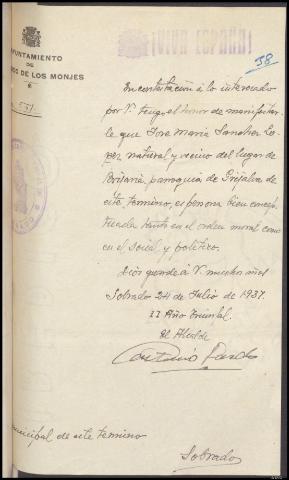 ¡VIVA ESPAÑA!
38
AYUNTAMIENTO
DE
DE LOS MONJES
En contestación á lo interesado
por V. tengo el honor de manifestar
le que Jose Maria Sanchez Lo-
pez natural y vecino del lugar de
parroquia de Grijalva de
este termino, es persona bien concep
tuada tanto en el orden moral como
en el social y político.
Dios guarde á V. muchos años
Sobrado 24 de Julio de 1937.
II Año Triunfal.
El Alcalde
municipal de este termino
Sobrado